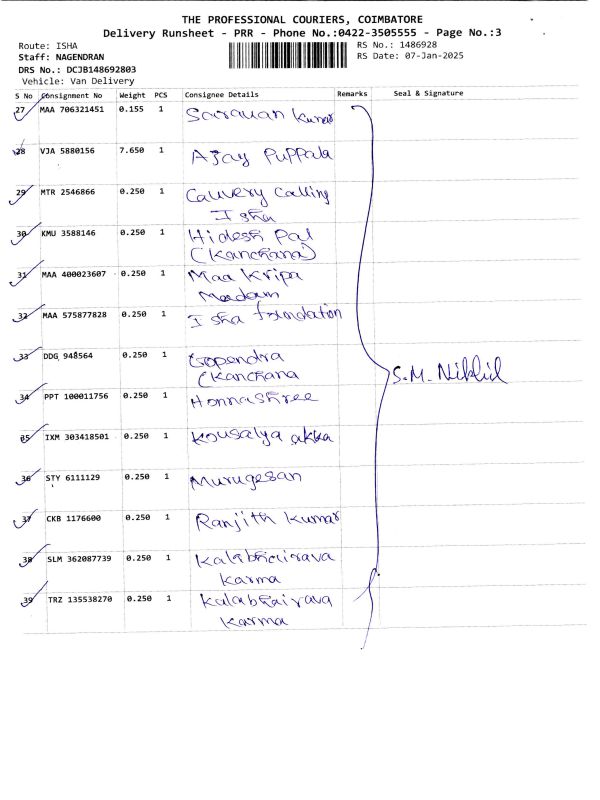 THE PROFESSIONAL COURIERS, COIMBATORE
Delivery Runsheet - PRR - Phone No.:0422-3505555 - Page No.:3
Route: ISHA
RS No.: 1486928
Staff: NAGENDRAN
RS Date: 07-Jan-2025
DRS No.: DCJB148692803
Vehicle: Van Delivery
S No Consignment No Weight PCS Consignee Details Remarks Seal & Signature
27 MAA 706321451 0.155 1 Saravan Kumar
28 VJA 5880156 7.650 1 Ajay Puppala
29 MTR 2546866 0.250 1 Cauvery Calling
Isha
30 KMU 3588146 0.250 1 Hidesh Pal
(Kanchana)
31 MAA 400023607 0.250 1 Maa Kripa
Madam
32 MAA 575877828 0.250 1 Isha foundation
33 DDG 948564 0.250 1 Gopendra
(Kanchana
S.M. Nikhil
34 PPT 100011756 0.250 1 Honnashree
35 IXM 303418501 0.250 1 Kousalya akka
36 STY 6111129 0.250 1 Murugesan
37 CKB 1176600 0.250 1 Ranjith Kumar
38 SLM 362087739 0.250 1 Kalabhairava
Karma
39 TRZ 135538270 0.250 1 Kalabhairava
Karma